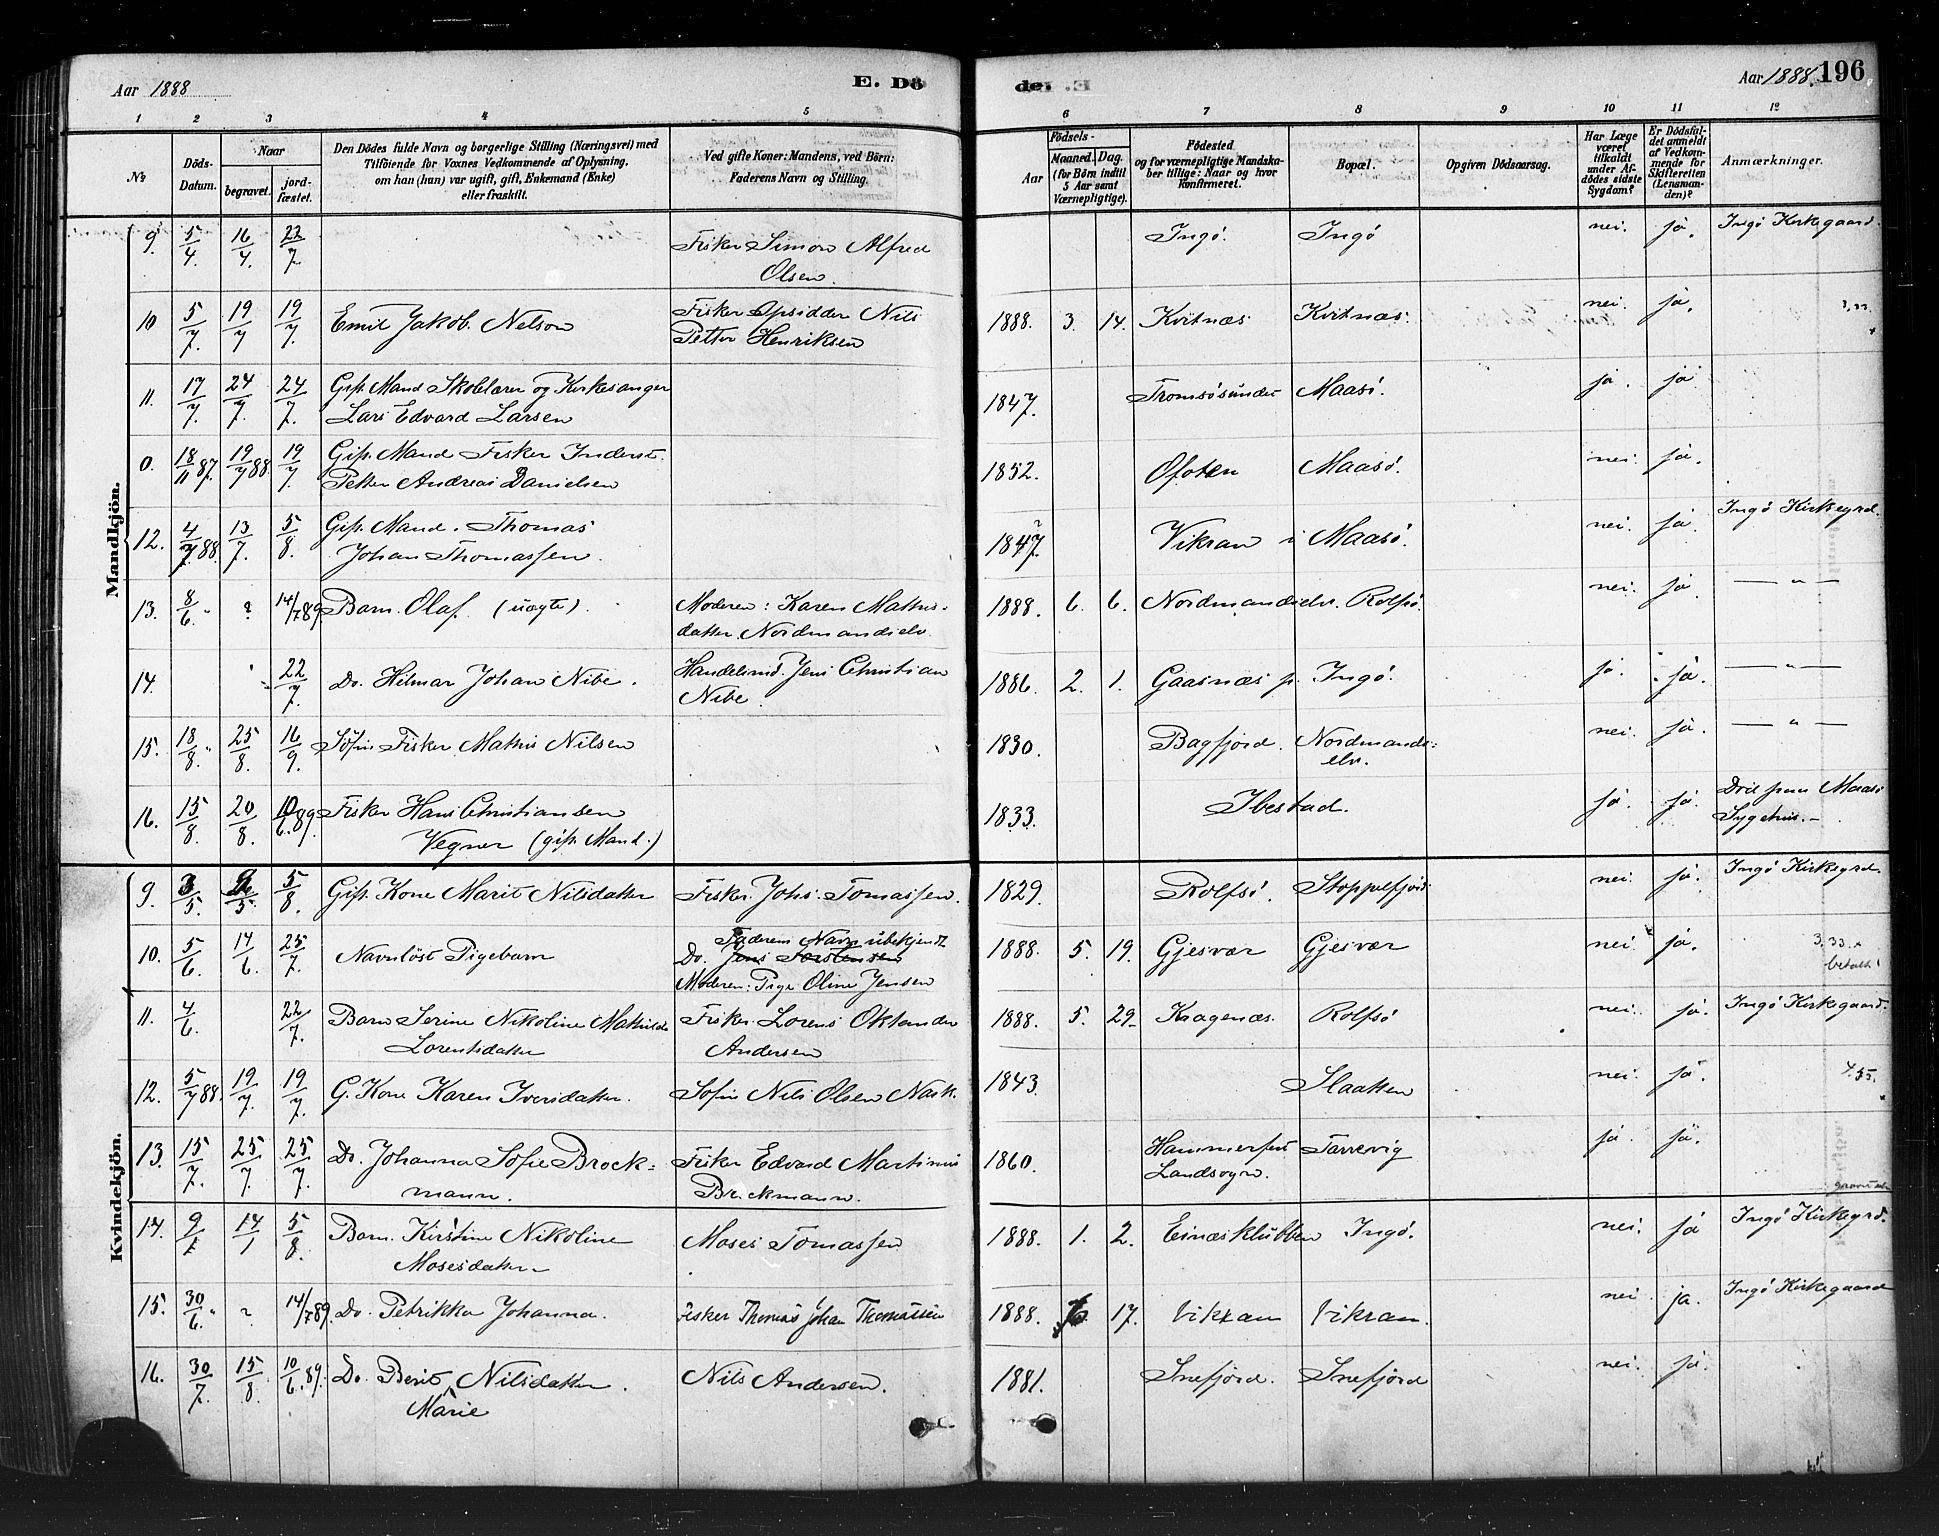 Aar 1888
E. Dö
de. E
Aar 1888. 196
1 2 3 4 5 6 7 8 9 10 11 12
No
Döds-Datum.
Naar
begravet.
jord-fæstet.
Den Dödes fulde Navn og borgerlige Stilling (Næringsvei) med
Tilföiende for Voxnes Vedkommende af Oplysning,
om han (hun) var ugift, gift, Enkemand (Enke)
eller fraskilt.
Ved gifte Koner: Mandens, ved Börn:
Faderens Navn og Stilling.
Födsels-
Aar
Maaned. Dag.
(for Börn indtil
5 Aar samt
Værnepligtige).
Födested
og for værnepligtige Mandska-
ber tillige: Naar og hvor
konfirmeret.
Bopæl.
Opgiven Dödsaarsag.
Har Læge
været
tilkaldt
under Af-
dödes sidste
Sygdom?
Er Dödsfal-
det anmeldt
af Vedkom-
mende for
Skifteretten
(Lensman-
den)?
Anmærkninger.
Mandkjön.
9. 5/4 16/4 22/7 Fisker Simon Alfred Ingö. Ingö nei. ja. Ingö Kirkegaard.
Olsen.
10 5/7 19/7 19/7 Emil Jakob Nelson Fisker Opsidder Nils 1888. 3. 14. Kvitnæs Kvitnæs. nei. ja. 3,33
Petter Henriksen
11. 17/7 24/7 24/7 Gift Mand Skolelærer og Kirkesanger 1847. Tromsösundet Maasö. ja. ja
Lars Edvard Larsen
0. 18/11 87. 19/7 88. 19/7 Gift. Mand Fisker Inderst. 1852. Ofoten Maasö. nei. ja.
Petter Andreas Danielsen
12. 4/7 88. 13/7 5/8 Gift. Mand. Thomas 1847. Vikran i Maasö. nei. ja. Ingö Kirkegrd.
Johan Thomassen.
13. 8/6 " ? 14/7 89 Barn. Olaf. (uægte). Moderen: Karen Mathis- 1888. 6. 6. Nordmandselv. Rolfsö. nei. ja. — " —
datter Nordmandselv.
14. 22/7 Do. Hilmar Johan Nibe. Handelsmd. Jens Christian 1886. 2. 1. Gaasnæs p. Ingö. ja. ja. — " —
Nibe.
15. 18/8 " 25/8. 16/9. Söfin Fisker Mathis Nilsen 1830. Bagfjord. Nordmands- nei. ja. — " —
elv.
16. 15/8. 20/8. 10/6 89. Fisker Hans Christiansen 1833. Ibestad. ja. ja. Död paa Maasö
Vegner (gift Mand.) Sygehus. —
Kvindekjön.
9. 3/5. 9/5. 5/8. Gift. Kone Marit Nilsdatter Fisker. Johs. Tomassen. 1829. Rolfsö. Stoppelfjord nei. ja. Ingö Kirkegrd.
10. 5/6 14/6. 25/7. Navnlöst Pigebarn Faderens Navn ubekjendt 1888. 5. 19. Gjesvær Gjesvær nei. ja. 3.33. betalt!
Do. Jens Torstensen
Moderen: Pige Oline Jensen
11. 4/6 22/7. Barn Serine Nikoline Mathilde Fisker. Lorens Oktander 1888. 5. 29 Kragenæs. Rolfsö nei. ja. Ingö Kirkegaard.
Lorentsdatter Andersen
12. 5/7 88. 19/7. 19/7. G. Kone Karen Iversdatter. Söfin Nils Olsen Nask. 1843. Slaatten nei. ja. 4.55.
13. 15/7. 25/7 25/7. Do. Johanna Sofie Brock- Fisker Edvard Martinus 1860. Hammerfest Tarrevig ja. ja.
mann. Brickmann. Landsogn.
14. 9/1 14/1 5/8. Barn. Kirstine Nikoline Moses Tomassen 1888. 1. 2. Einæsklubben Ingö. nei. ja Ingö Kirkegrd.
Mosesdatter
15. 30/6. " ? 14/7 89. Do. Petrikka Johanna. Fisker Thomas Johan Thomassen 1888. 6. 17. Vikran Vikran. nei ja. Ingö Kirkegaard
16. 30/7. 15/8. 10/6. 89. Do. Berit Nilsdatter. Nils Andersen. 1881. Snefjord. Snefjord nei. ja.
Marie